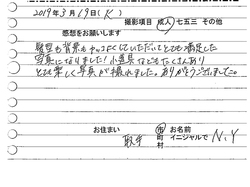 2019年3月19日(火)
撮影項目 成人 七五三 その他
感想をお願いします
髪型も背景もかっこよくしていただいてとても満足した
写真になりました!小道具などもたくさんあり
とても楽しく写真が撮れました。ありがとうございました。
お住まい
取手
市町村
お名前
イニシャルで
N.Y